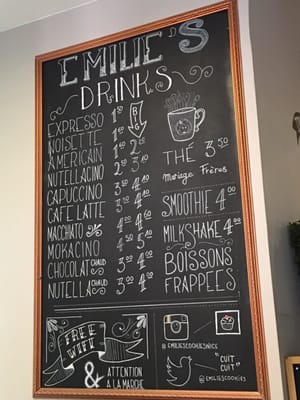 EMILIE'S
DRINKS
BIG
EXPRESSO 1.50
NOISETTE 1.50
AMERICAIN 1.50 2.50
NUTELLACINO 2.50 3.40
CAPUCCINO 3.50 4.40
CAFE LATTE 3.50 4.40
MACCHIATO 4.00 4.60
MOKACINO 4.50 5.40
CHOCOLAT CHAUD 3.00 4.00
NUTELLA CHAUD 3.00 4.00
THÉ 3.50
Mariage Frères
SMOOTHIE 4.00
MILKSHAKE 4.00
BOISSONS
FRAPPEES
FREE
WIFI
& ATTENTION
A LA MARCHE
@EMILIESCOOKIESNICE
"CUIT
CUIT"
@EMILIESCOOKIES